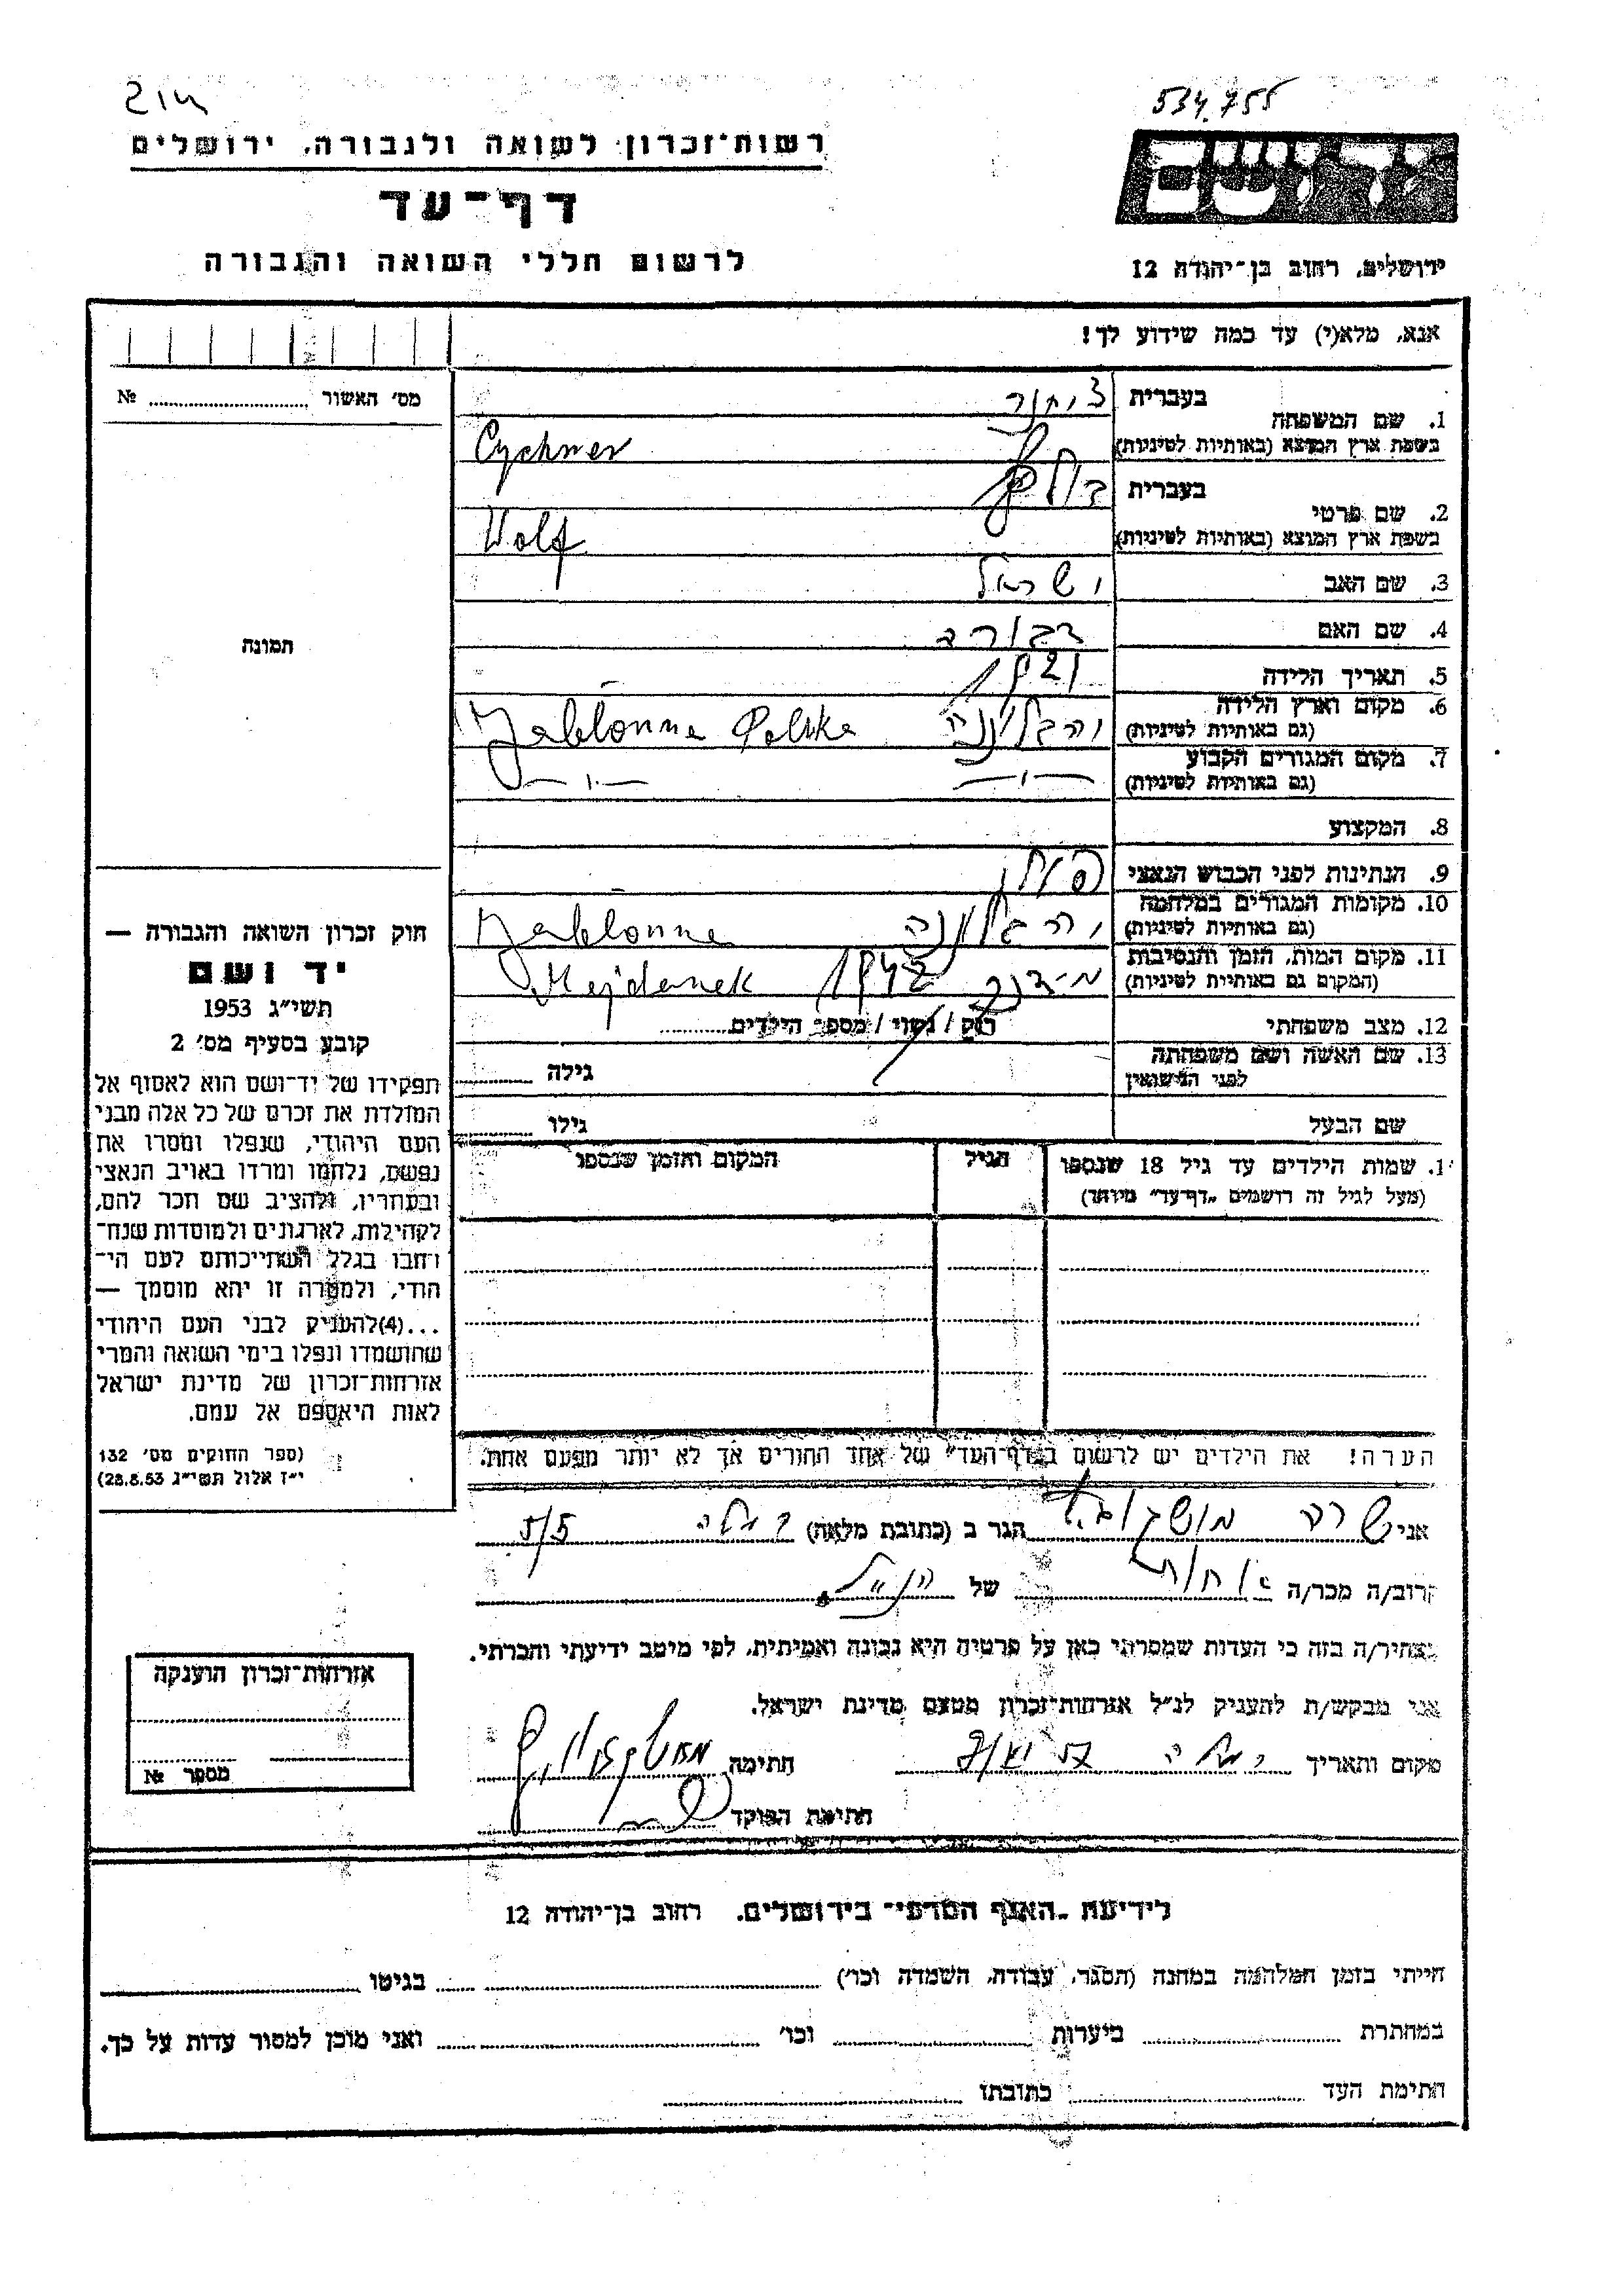 534.755
רשות־זכרון לשואה ולגבורה, ירושלים
יד ושם
דף־עד
לרשום חללי השואה והגבורה
ירושלים, רחוב בן־יהודה 12
אנא, מלא(י) עד כמה שידוע לך!
מס' האשור № 
1. שם המשפחה בעברית ציחנר
בשפת ארץ המוצא (באותיות לטיניות) Cychner
2. שם פרטי בעברית וולף
בשפת ארץ המוצא (באותיות לטיניות) Wolf
3. שם האב ישראל
4. שם האם דבורה
5. תאריך הלידה 1921
6. מקום וארץ הלידה (גם באותיות לטיניות) יבלונה Jablonna Polska
7. מקום המגורים הקבוע (גם באותיות לטיניות) —״— —״—
8. המקצוע
9. הנתינות לפני הכבוש הנאצי פולן
10. מקומות המגורים במלחמה (גם באותיות לטיניות) יבלונה Jablonna
11. מקום המות, הזמן והנסיבות (המקום גם באותיות לטיניות) מידנק 1942 Majdanek
12. מצב משפחתי רווק / נשוי / מספר הילדים
13. שם האשה ושם משפחתה לפני הנישואין גילה
שם הבעל גילו
1. שמות הילדים עד גיל 18 שנספו הגיל המקום והזמן שנספו
(מעל לגיל זה רושמים „דף־עד" מיוחד)
תמונה
חוק זכרון השואה והגבורה —
יד ושם
תשי"ג 1953
קובע בסעיף מס' 2
תפקידו של יד־ושם הוא לאסוף אל
המולדת את זכרם של כל אלה מבני
העם היהודי, שנפלו ומסרו את
נפשם, נלחמו ומרדו באויב הנאצי
ובעוזריו, ולהציב שם וזכר להם,
לקהילות, לארגונים ולמוסדות שנח־
רבו בגלל השתייכותם לעם הי־
הודי, ולמטרה זו יהא מוסמך —
...(4)להעניק לבני העם היהודי
שהושמדו ונפלו בימי השואה והמרי
אזרחות־זכרון של מדינת ישראל
לאות היאספם אל עמם.
(ספר החוקים מס' 132
י"ז אלול תשי"ג 28.8.53)
הערה! את הילדים יש לרשום ב„דף־העד" של אחד ההורים אך לא יותר מפעם אחת.
אני שרה הגר ב (כתובת מלאה) רמלה 5/5
קרוב/ה מכר/ה אחות של הנ"ל
מצהיר/ה בזה כי העדות שמסרתי כאן על פרטיה היא נכונה ואמיתית, לפי מיטב ידיעתי והכרתי.
אני מבקש/ת להעניק לנ"ל אזרחות־זכרון מטעם מדינת ישראל.
מקום ותאריך רמלה חתימה
חתימת הפוקד
אזרחות־זכרון הוענקה
מספר №
לידיעת „האגף המדעי" בירושלים, רחוב בן־יהודה 12
הייתי בזמן המלחמה במחנה (הסגר, עבודה, השמדה וכו') בגיטו
במחתרת ביערות וכו' ואני מוכן למסור עדות על כך.
חתימת העד כתובתו